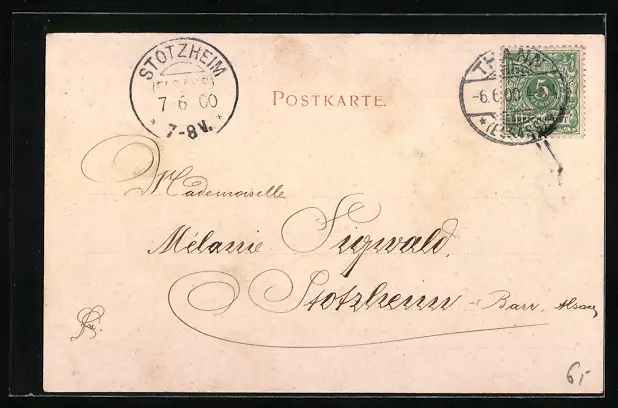 STOTZHEIM
(ELSASS)
7 6 00
7-8V.
POSTKARTE.
THANN
-6.6.00
(ELSASS)
5
Mademoiselle
Mélanie Sigwald.
Stotzheim - Barr. Alsace
6,-